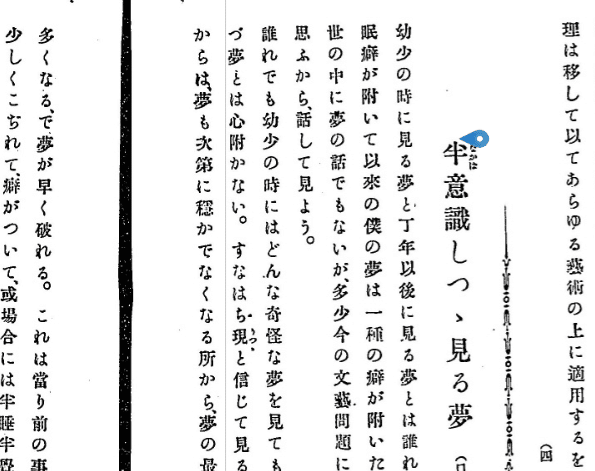 理は移して以てあらゆる藝術の上に適用するを
(四
半意識しつゝ見る夢
幼少の時に見る夢と丁年以後に見る夢とは誰れ
眠癖が附いて以來の僕の夢は一種の癖が附いた
世の中に夢の話でもないが、多少今の文藝問題に
思ふから、話して見よう。
誰れでも幼少の時にはどんな奇怪な夢を見ても
づ夢とは心附かない。すなはち現と信じて見る
からは、夢も次第に穩かでなくなる所から、夢の最
多くなる、で夢が早く破れる。これは當り前の事
少しくこぢれて、癖がついて、或場合には半睡半覺